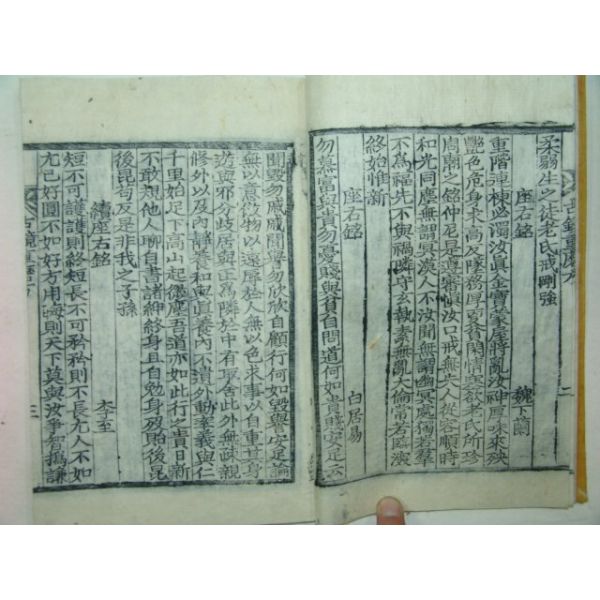 古鏡重磨方 二
柔弱生之徒老氏戒剛強
座右銘 魏卞蘭
重階連棟必濁汝眞金寶滿屋將亂汝神厚味來殃
艷色危身求高反墜務厚更貧閑情塞欲老氏所珍
周廟之銘仲尼是遵審愼汝口戒無失人從容順時
和光同塵無謂冥漠人不汝聞無謂幽冥處獨若羣
不爲福先不與禍隣守玄執素無亂大倫常若臨深
終始惟新
座右銘 白居易
勿慕富與貴勿憂賤與貧自問道何如貴賤安足云
聞毁勿戚戚聞譽勿欣欣自顧行何如毁譽安足論
無以意傲物以遠辱於人無以色求事以自重其身
遊與邪分歧居與正爲隣於中有取舍此外無疎親
修外以及內靜養和與眞養內不遺外動率義與仁
千里始足下高山起微塵吾道亦如此行之貴日新
不敢規他人聊自書諸紳終身且自勉身歿貽後昆
後昆苟反是非我之子孫
續座右銘 李至
短不可護護則終短長不可矜矜則不長尤人不如
尤己好圓不如好方用晦則天下莫與汝爭智撝謙
古鏡重磨方 三